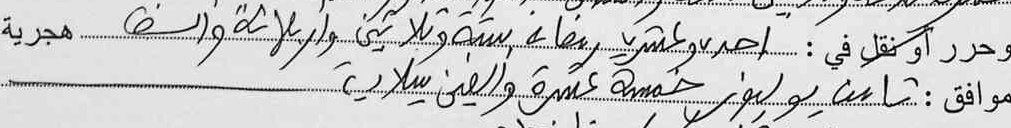 وحرر أو نقل في : احدى وعشرين رمضان ستة وثلاثين واربعمائة والف هجرية
موافق : ثامن يوليوز خمسة عشرة والفين ميلادية